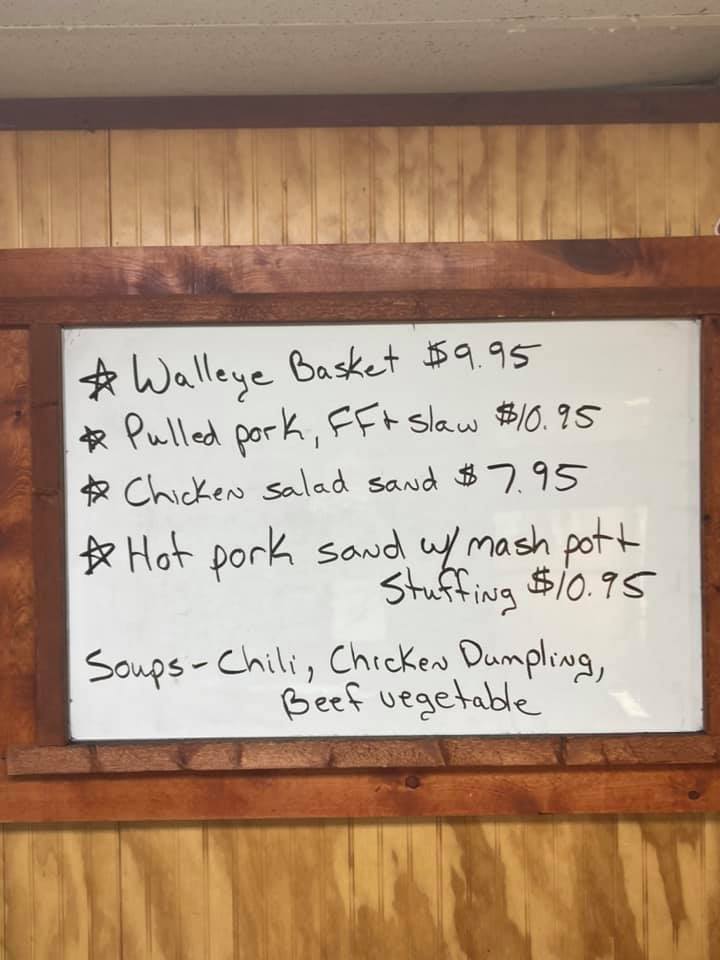 ☆ Walleye Basket $9.95
☆ Pulled pork, FF + Slaw $10.95
☆ Chicken salad sand $7.95
☆ Hot pork sand w/ mash pot +
Stuffing $10.95
Soups - Chili, Chicken Dumpling,
Beef vegetable